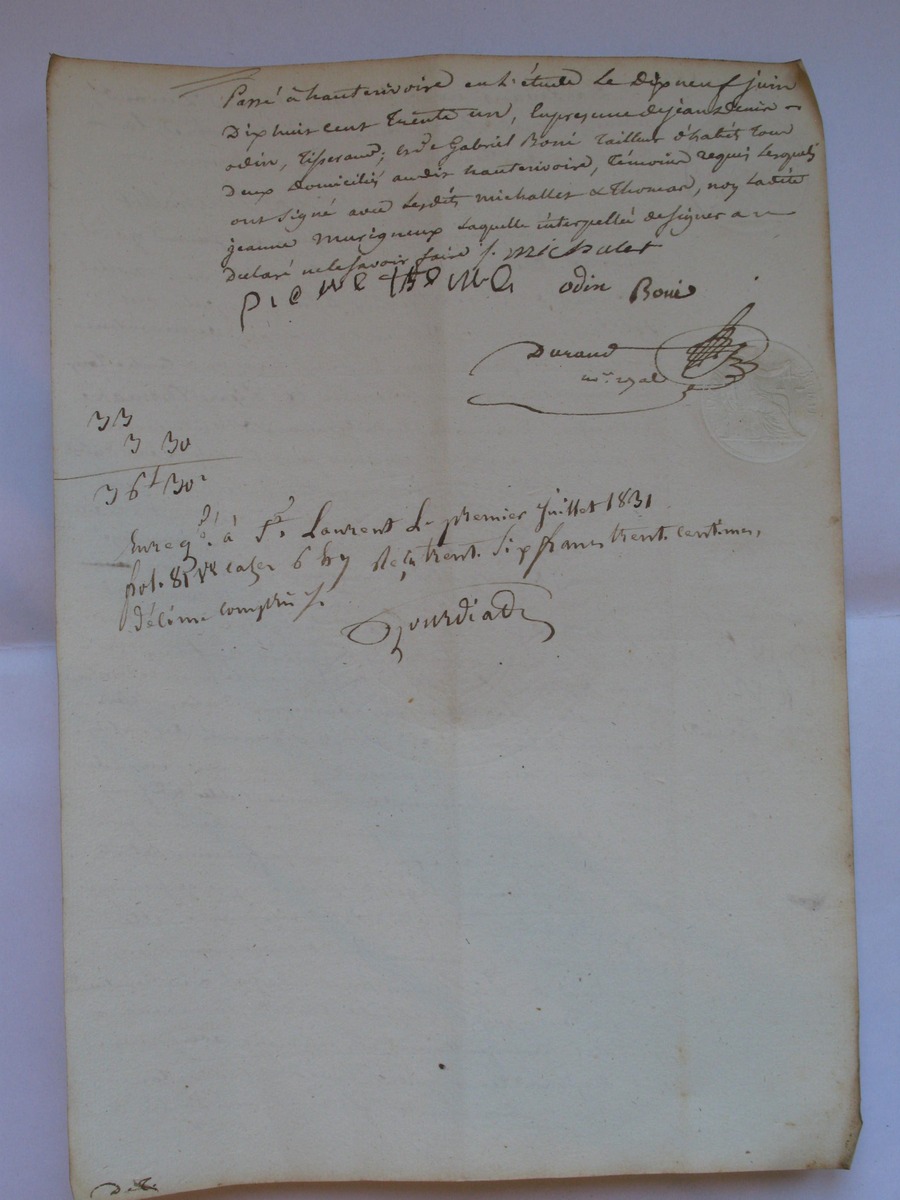 Passé à hauterivoire en l'étude Le Dix neuf juin
Dix huit cent Trente un, En présence de jean denis
odin, Tisserand, et de Gabriel Boni Tailleur d'habits Tous
Deux Domiciliés audit hauterivoire, Témoins requis Lesquels
ont signé avec Lesdits michallet & Thomas, non Ladite
jeanne Murigneux Laquelle interpellée de signer a
Déclaré ne le savoir faire /. Michalet
odin Boni
Durand
nre. royal
33
3 30
36f 30c
Enregé. à St. Laurent Le premier juillet 1831
fol. 81 vo. cases 6 & 7 Reçu trente Six francs trente centimes,
décime compris /.